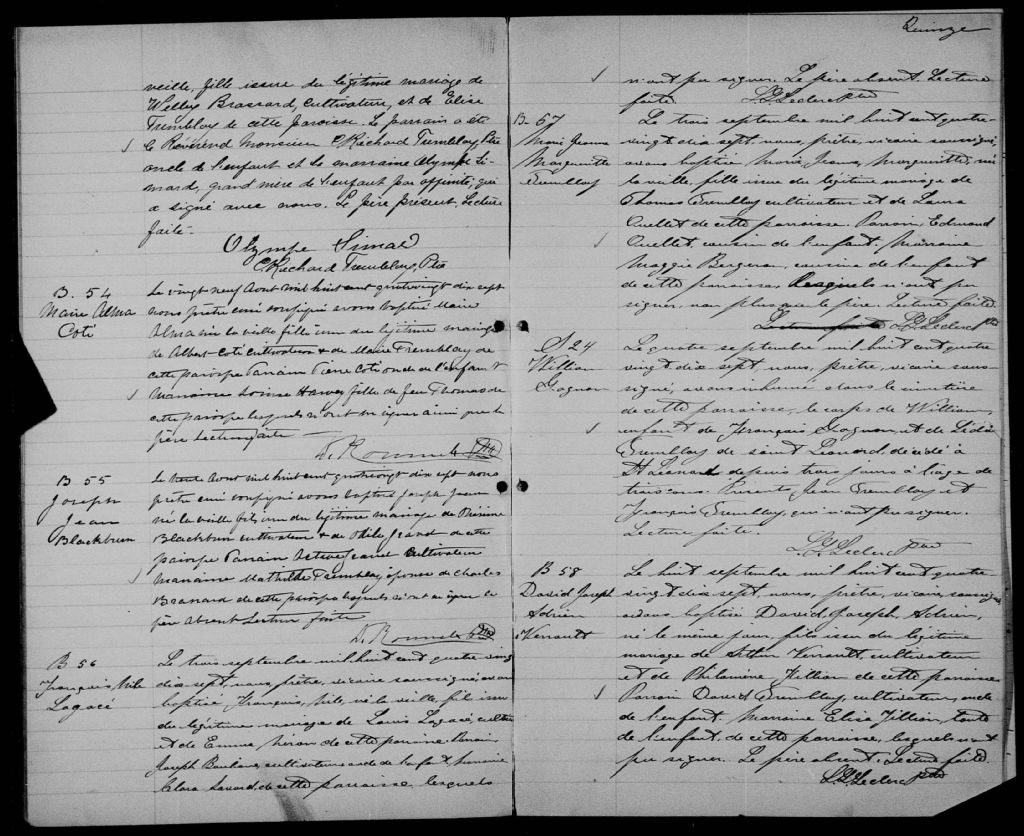 veille, fille issue du légitime mariage de
Welley Brassard, cultivateur, et de Elise
Tremblay de cette paroisse. Le parrain a été
le Révérend Monsieur Richard Tremblay, Ptre
oncle de l'enfant et la marraine Olympe Si-
mard, grand'mère de l'enfant par affinité, qui
a signé avec nous. Le père présent. Lecture
faite.
Olympe Simard
Richard Tremblay, Ptre
B. 54
Marie Alma
Coté
Le vingt neuf Aout mil huit cent quatrevingt dix sept
nous prêtre curé soussigné avons baptisé Marie
Alma née la veille fille issue du légitime mariage
de Albert Coté Cultivateur & de Marie Tremblay de
cette paroisse Parrain Pierre Coté oncle de l'enfant
Marraine Louise Harvey fille de feu Thomas de
cette paroisse lesquels n'ont su signer ainsi que le
père Lecture faite
B 55
Joseph
Jean
Blackburn
Le trente Aout mil huit cent quatrevingt dix sept nous
prêtre curé soussigné avons baptisé Joseph Jean
né la veille fils issu du légitime mariage de
Blackburn cultivateur & de de cette
paroisse Parrain Cultivateur
marraine Mathilde Tremblay épouse de Charles
de cette paroisse lesquels n'ont su signer le
père absent Lecture faite
B 56
François
Lagacé
Le trois septembre mil huit cent quatre vingt
dix sept, nous, prêtre, vicaire soussigné avons
baptisé François, né la veille, fils issu
du légitime mariage de Louis Lagacé, cultiv
et de Emma de cette paroisse. Parrain
Joseph cultivateur oncle de l'enfant, marraine
Clara de cette paroisse, lesquels
Quinze
n'ont pu signer. Le père absent. Lecture
faite. Leclerc Ptre
B- 57
Marie Jeanne
Marguerite
Tremblay
Le trois septembre mil huit cent quatre-
vingt dix sept, nous, prêtre, vicaire soussigné,
avons baptisé Marie, Jeanne, Marguerite, née
la veille, fille issue du légitime mariage de
Thomas Tremblay cultivateur et de Laura
Ouellet de cette paroisse. Parrain, Edmond
Ouellet cousin de l'enfant. Marraine
Maggie Bergeron, cousine de l'enfant
de cette paroisse, lesquels n'ont pu
signer non plus que le père. Lecture faite.
Lecture faite Leclerc Ptre
S 24
William
Gagnon
Le quatre septembre mil huit cent quatre
vingt dix sept, nous, prêtre, vicaire sous-
signé, avons inhumé dans le cimetière
de cette paroisse, le corps de William,
enfant de François Gagnon, et de Lédia
Tremblay de saint Léonard, décédé à
St Léonard depuis trois jours à l'âge de
trois ans. Présents, Jean Tremblay et
François Tremblay, qui n'ont pu signer.
Lecture faite.
Leclerc Ptre
B 58
David Joseph
Adrien
Verrault
Le huit septembre mil huit cent quatre-
vingt dix sept, nous, prêtre, vicaire, soussigné
avons baptisé David, Joseph, Adrien,
né le même jour, fils issu du légitime
mariage de Arthur Verrault, cultivateur
et de Philomène Fillion de cette paroisse
Parrain David Tremblay, cultivateur, oncle
de l'enfant. Marraine Elisa Fillion, tante
de l'enfant, de cette paroisse, lesquels n'ont
pu signer. Le père absent. Lecture faite.
Leclerc Ptre